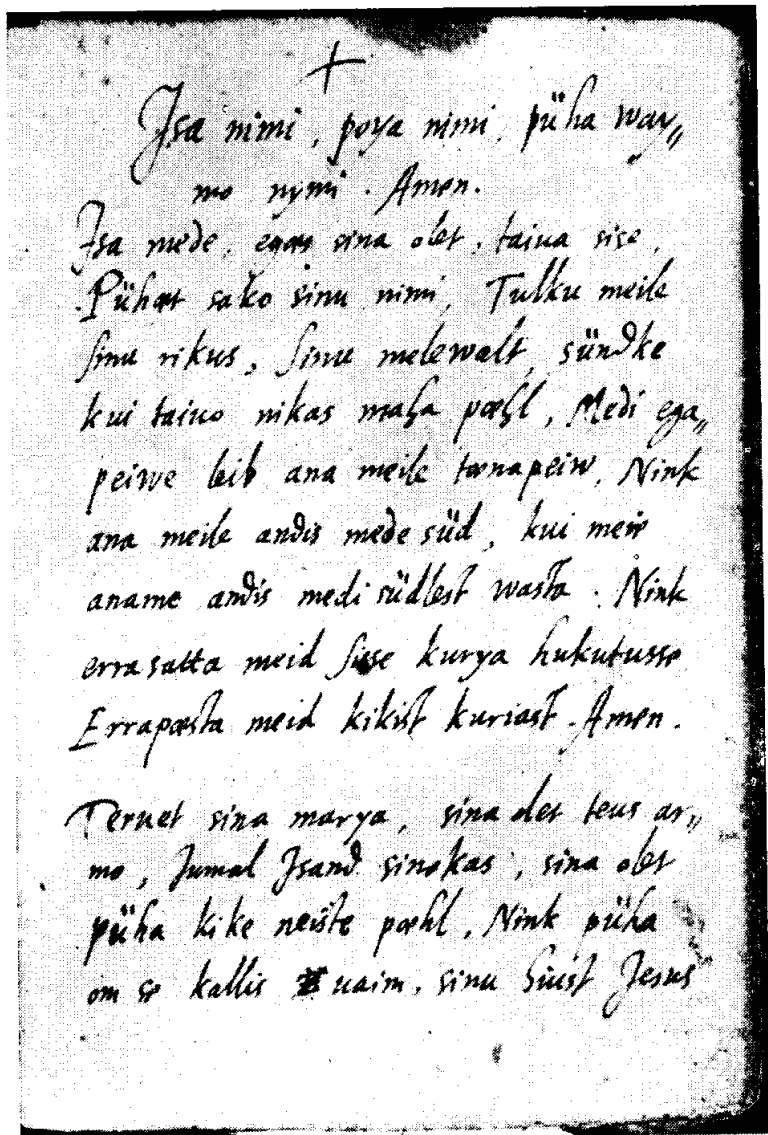 Isa nimi, poya nimi, püha way„
mo nymi. Amen.
Isa mede, egæs sina olet, taiua sise,
Pühæt sako sinu nimi, Tulku meile
sinu rikus, sinu melewalt sündke
kui taiuo nikas maha pæhl, Medi ega„
peiwe leib ana meile tænapeiw, Nink
ana meile andis mede süd, kui meir
aname andis medi südlest wasta. Nink
erra satta meid suse kurya hukutusse
Errapæsta meid kikist kuriast. Amen.
Teruet sina marya, sina olet teus ar„
mo, Jumal Isand sinokas, sina olet
püha kike neiste pæhl, Nink püha
om se kallis uaim, sinu hiust Jesus